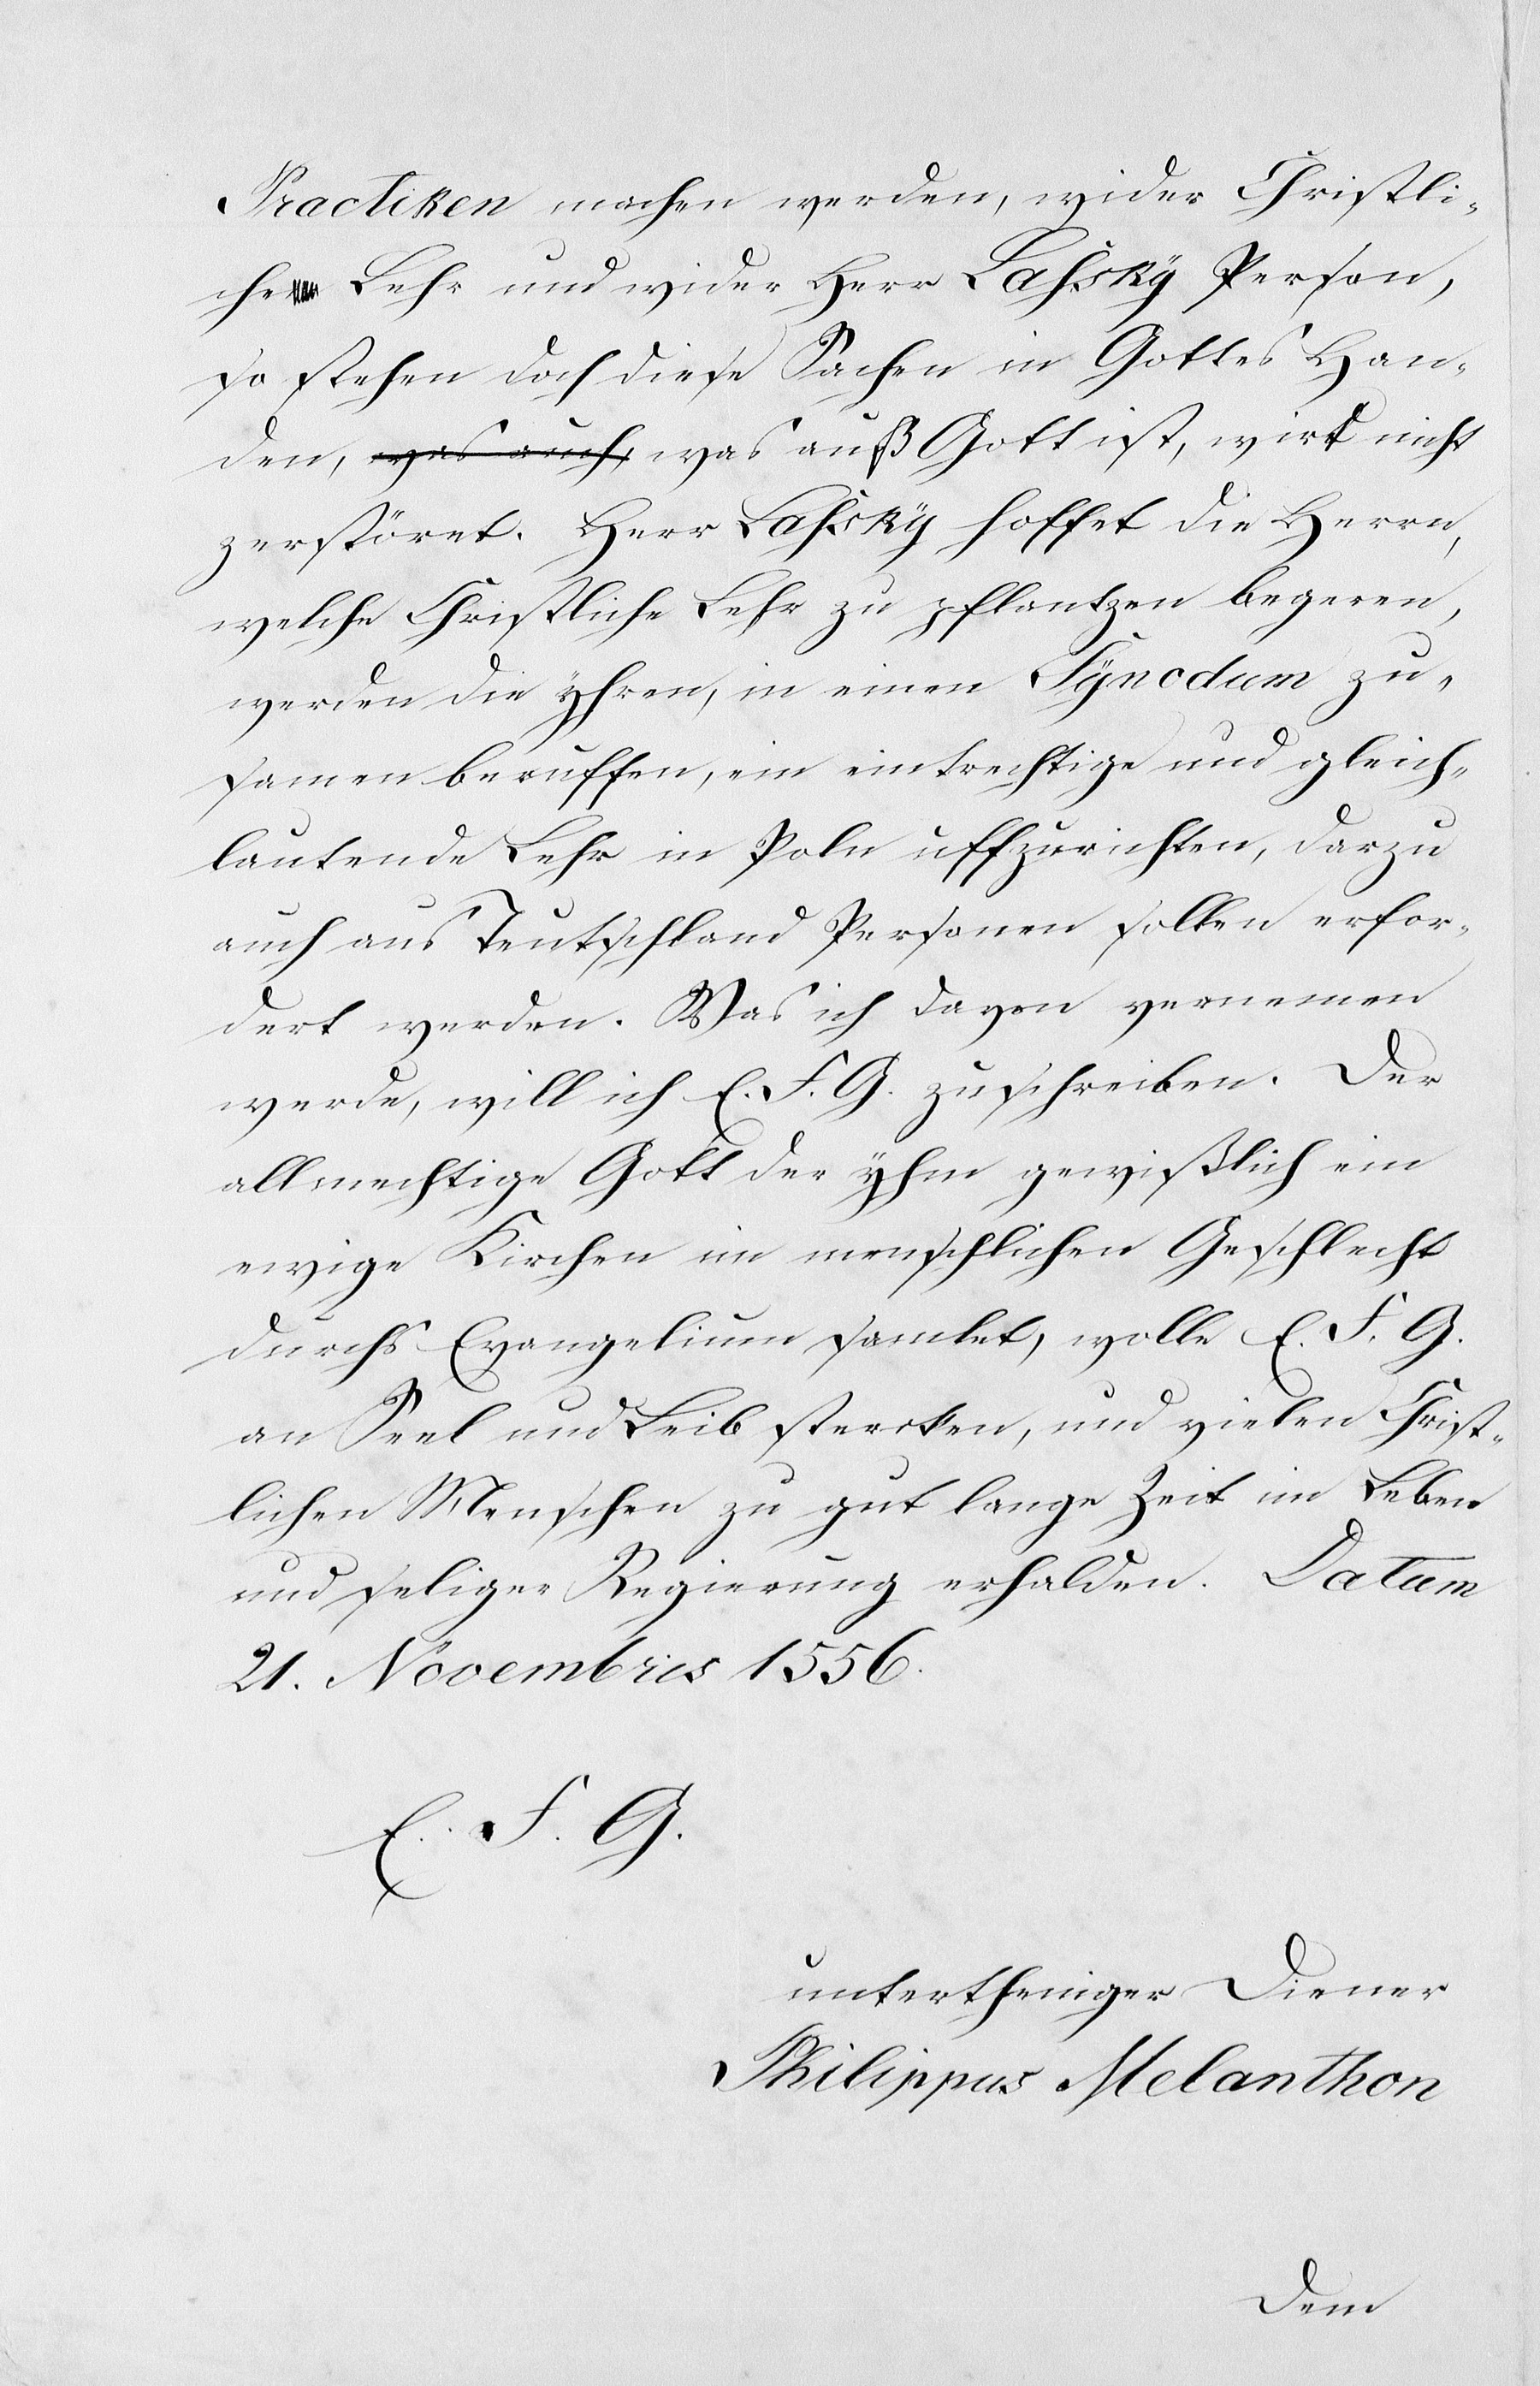 Practiken machen werden, wider Christli-
che Lehr und wider Herr Lahsky Person,
so stehen doch diese Sachen in Gottes Han-
den, was auch, was auß Gott ist, wirt nicht
zerstöret. Herr Lahsky hoffet die Herrn,
welche Christliche Lehr zu pflantzen begeren,
werden die yhren, in einen Synodum zu-
samen beruffen, ein eintrechtige und gleich-
lautende Lehr in Poln uffzurichten, darzu
auch aus Teutschland Personen sollen erfor-
dert werden. Was ich davon vernemen
werde, will ich E. F. G. zuschreiben. Der
allmechtige Gott der yhm gewißlich ein
ewige Kirchen im menschlichen Geschlecht
durchs Evangelium samlet, wolle E. F. G.
an Seel und Leib stercken, und vielen Christ-
lichen Menschen zu gut lange Zeit im Leben
und seliger Regierung erhalden. Datum
21. Novembris 1556.
E. F. G.
untertheniger Diener
Philippus Melanthon
Dem